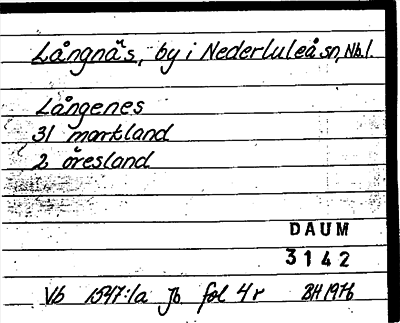 Långnäs, by i Nederluleå sn, Nb.l.
Långenes
31 markland
2 öresland
DAUM
3142
Vb 1547:1a Jb fol 4 r BH 1976